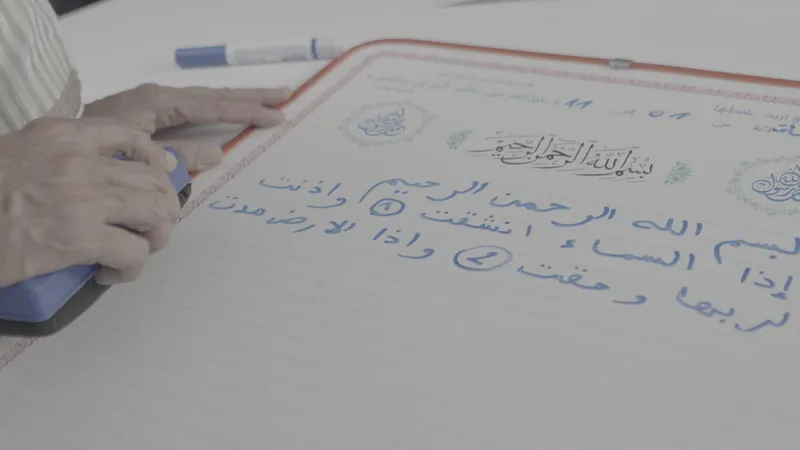 01 11
بسم الله الرحمن الرحيم
بسم الله الرحمن الرحيم
إذا السماء انشقت (1) واذنت
لربها وحقت (2) واذا الارض مدت